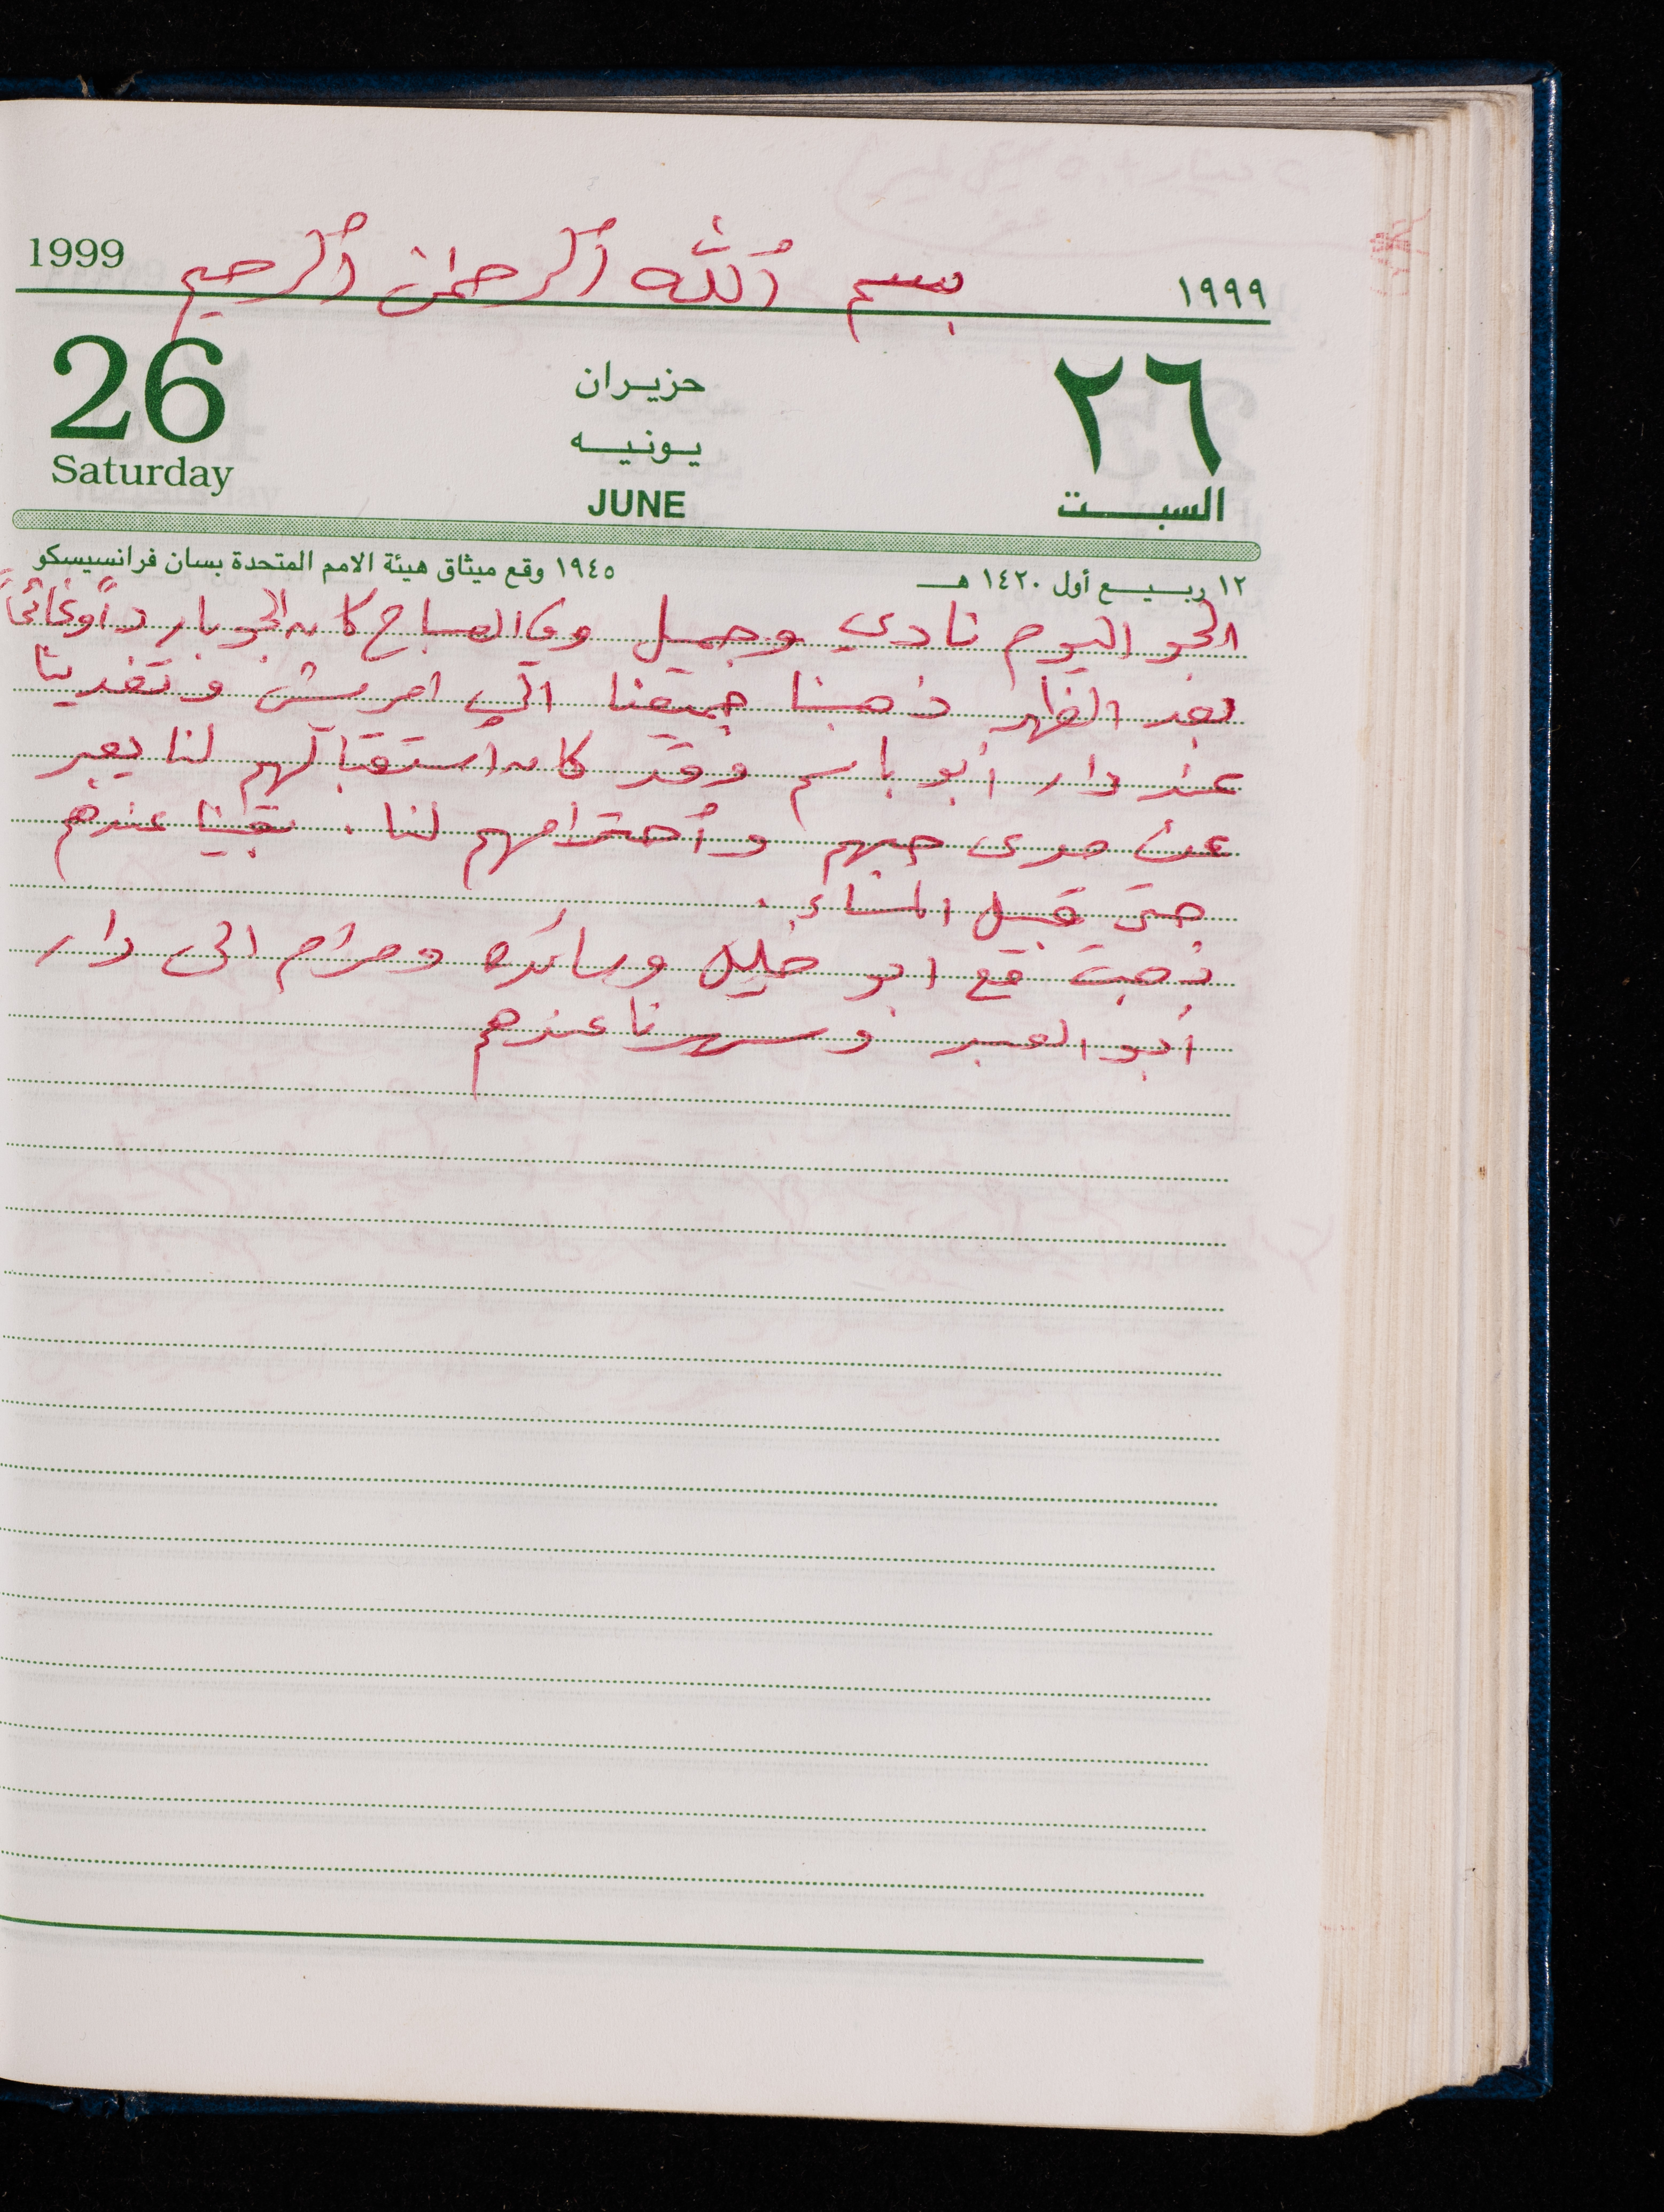 1999 بسم الله الرحمن الرحيم ١٩٩٩
26 حزيران ٢٦
يونيه
Saturday JUNE السبت
١٢ ربيع أول ١٤٢٠ هـ ١٩٤٥ وقع ميثاق هيئة الامم المتحدة بسان فرانسيسكو
الجو اليوم نادي وجميل وفي الصباح كان الجو بارداً وغائماً
بعد الظهر ذهبنا جميعنا الى امريش وتغدينا
عند دار أبو باسم وقد كان استقبالهم لنا يعبر
عن مدى حبهم وأحترامهم لنا . بقينا عندهم
حتى قبيل المساء .
ذهبت مع ابو خليل وسائده ومرام الى دار
أبو العبر وسهرنا عندهم